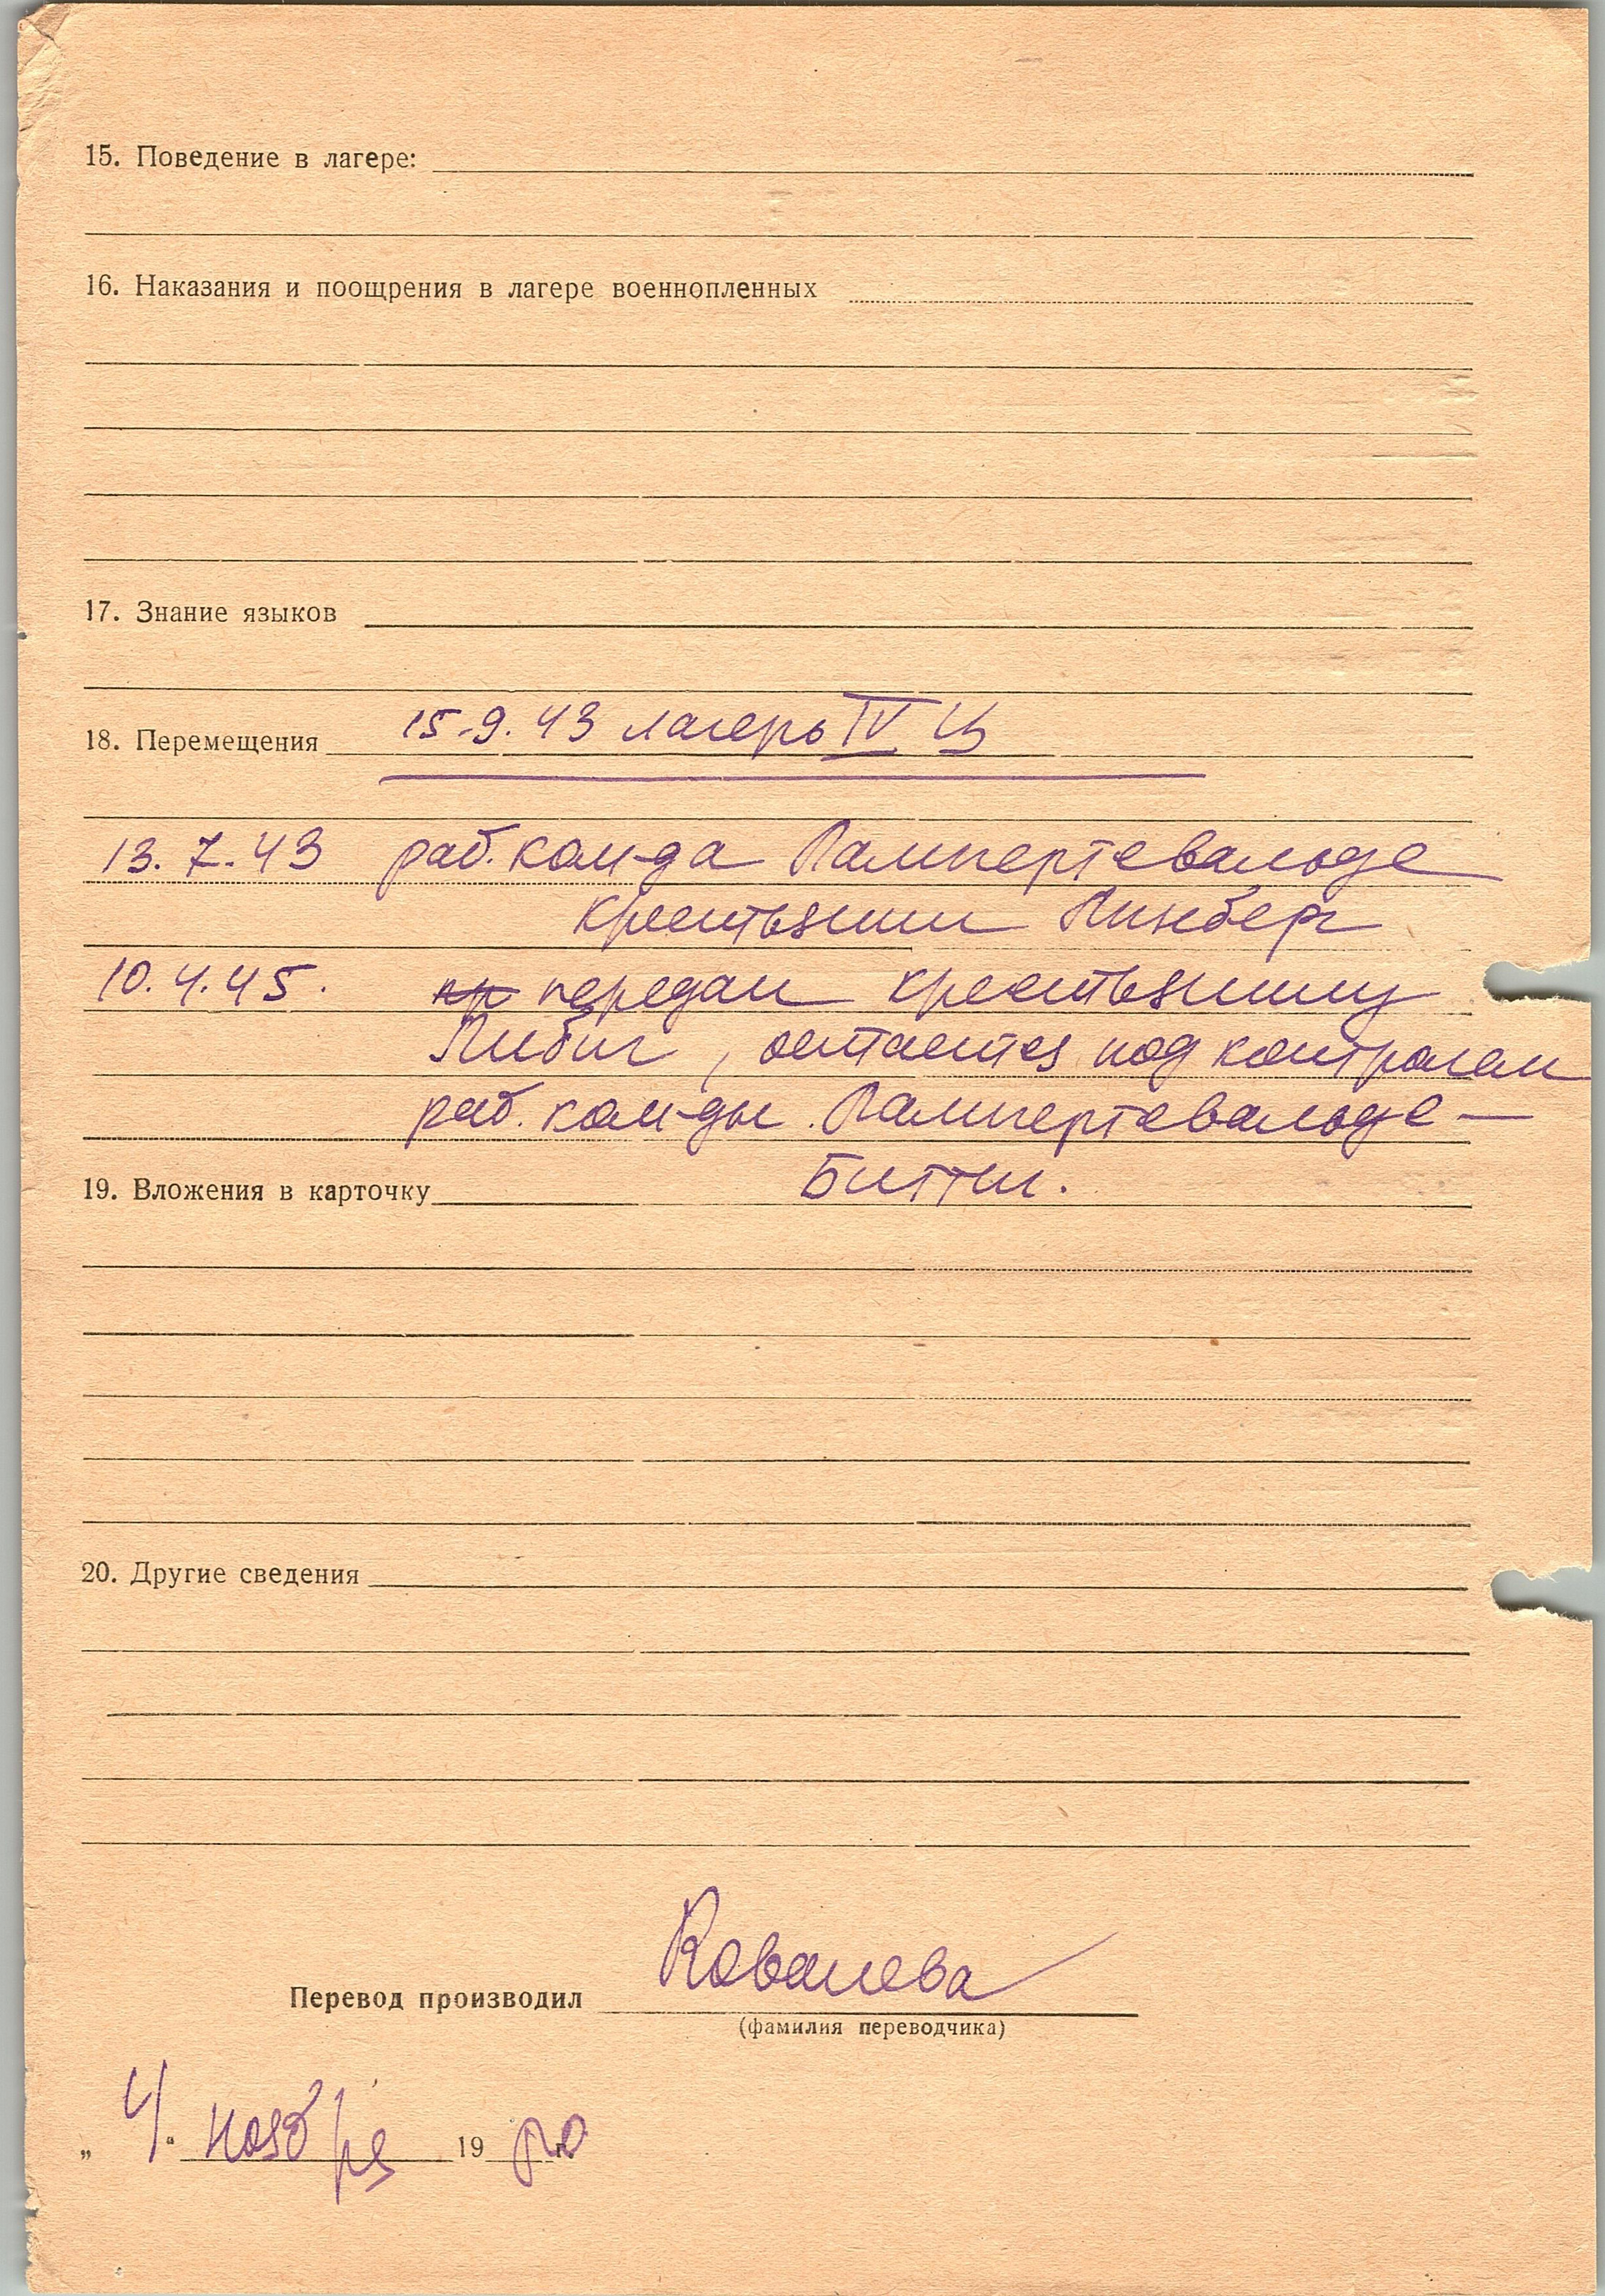 15. Поведение в лагере:
16. Наказания и поощрения в лагере военнопленных
17. Знание языков
18. Перемещения 15.9.43 лагерь IV Ц
13.7.43 раб. ком-да Лампертсвальде
крестьянин Линберг
10.4.45. кр передан крестьянину
Либиг, остается под контролем
раб. ком-ды Лампертсвальде —
19. Вложения в карточку Биттн.
20. Другие сведения
Перевод производил Ковалева
(фамилия переводчика)
„ 4 “ ноября 19 г.